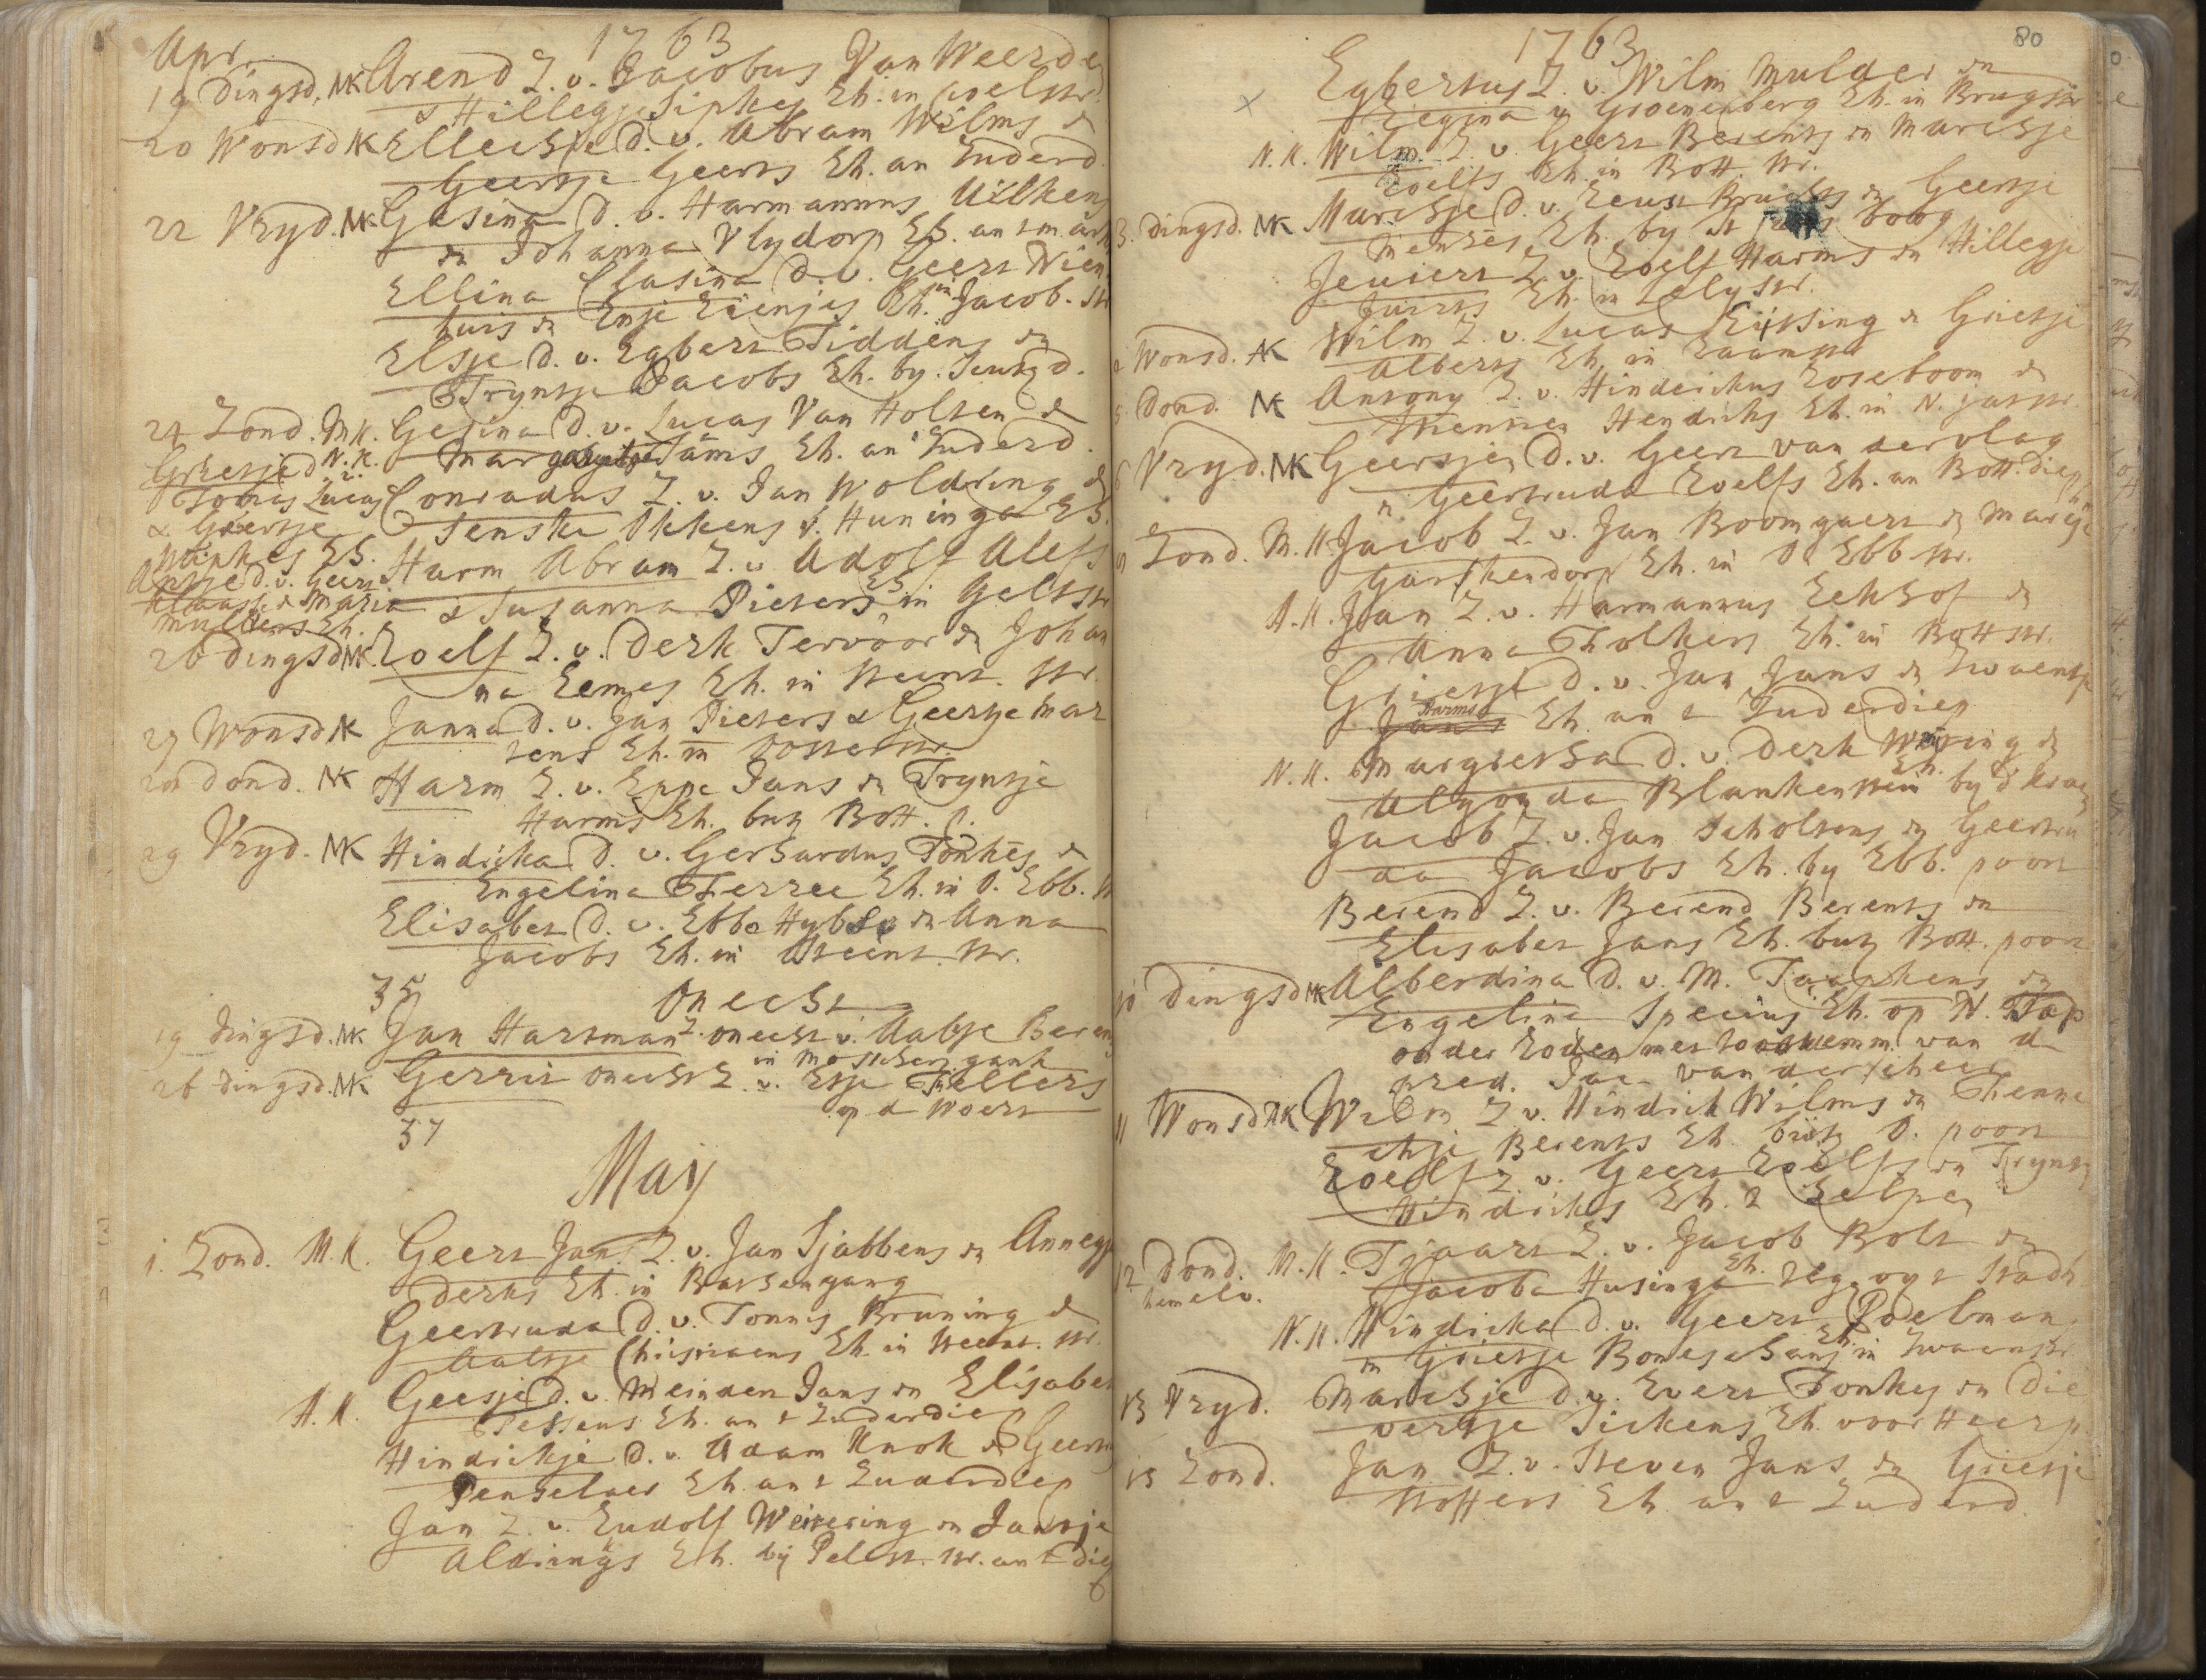 Apr. 1763
19 Dingsd. NK Arend Z. v. Jacobus Van Weerde
& Hillegje Sipkes Eh. in Poelstr.
20 Wonsd NK Elleche D. v. Abram Wilms &
Geertje Geerts Eh. an Zuderd.
22 Vryd. NK Gesina D. v. Harmannus Uilkens
en Johanna Vlydorp Eh. an t mark
Ellina Clasina D. v. Geert Nien
huis en Enje Eienjes Eh. in Jacob. str
Elsje D. v. Egbert Tiddens en
Tryntje Jacobs Eh. by
24 Zond. MK. Gesina D. v. Lucas Van Holten &
Margrietje Tams Eh. an Zuderd.
Grietje D. v. N.K.
Tonnis Lucas Conradus Z. v. Jan Woldring &
& Geertje Jenske Okkens v. Huninga Eh.
Eh. Harm Abram Z. v. Adolf Alefs
Antje D. v. Geert & Susanna Pieters Eh. in Gelkstr
Klaassen & Maria
Mulders Eh.
26 Dingsd NK. Roelf Z. v. Derk Tervoor & Johan
na Eemes Eh. in Steent. str.
27 Wonsd NK Janna D. v. Jan Pieters & Geertje Mar
tens Eh. in Oosterstr.
28 Dond. NK Harm Z. v. Eppe Jans en Tryntje
Harms Eh. but Bott. p.
29 Vryd. NK Hindrika D. v. Gerhardus Tonkes &
Engelina Ferree Eh. in O. Ebb. st
Elisabet D. v. Ebbo Hybels en Anna
Jacobs Eh. in Steent. str.
35
Onecht
19 Dingsd. NK Jan Hartman Z. onecht v. Aaltje Beren
in Mosscher gank
26 Dingsd. NK Gerrit onecht Z. v. Etje Tellers
op d Woert
37
Maij
1. Zond. M.K. Geert Jans Z. v. Jan Sjabbens en Annegje
Derks Eh. in Barsengang
Geertruda D. v. Tonnis Bruning &
Aaltje Christiaens Eh. in Steent. str.
A.K. Geesje D. v. Meinder Jans en Elisabet
Tessens Eh. an t Zuderdiep
Hindrikje D. v. Adam Knok & Geert
Penselaer Eh. an t Zuderdiep
Jan Z. v. Rudolf Weirering en Jantje
Aldrings Eh. bij Pelst. str. an t diep
1763 80
Egbertus Z. v. Wilm Mulder en
Regina v Groenenberg Eh. in Brugstr
N.K. Wilm Z. v. Geert Berents en Marchje
Roelfs Eh. in Bott. str.
3. Dingsd. NK Marchje D. v. Geertje
Menses Eh. by St boog
Jeuriert Z. v. Roelf Harms en Hillegje
Jurrs Eh. in Lelystr.
Wonsd. NK Wilm Z. v. Lucas en Grietje
Alberts Eh. in Raamstr
5 Dond. NK Antony Z. v. Hinderikus Roseboom &
Hendriks Eh. in N. Jatstr.
6 Vryd. NK Geertje D. v. Geert van der vlag
en Geertruda Roelfs Eh. an Bott. diep
Zond. M.K. Jacob Z. v. Jan Boomgaert & Marije
Garskendorp Eh. in O. Ebb str.
A.K. Jan Z. v. Harmannus Eekhof &
Anna Folkers Eh. in Bottstr.
Grietje D. v. Jan Jans & Zwaentje
Jans Harms Eh. an t Zuderdiep
N.K. Margretha D. v. Derk &
Alyonda Blankenstein Eh. by d' kraen
Jacob Z. v. Jan Scholtens & Geertru
da Jacobs Eh. by Ebb. poort
Berend Z. v. Berend Berents en
Elisabet Jans Eh. buit Bott. poort
10 Dingsd NK Alberdina D. v. M. Taapkens en
Engelina Specius Eh. op N. Stap
onder Roden met toostemm. van d
pred. Jac. van der scheer
11 Wonsd NK Wilm Z. v. Hindrik Wilms en Fenne
chje Berents Eh. buit O. poort
Roelf Z. v. Geert Roelfs en Tryntje
Hindriks Eh. t
12 Dond. M.K. Tjaart Z. v. Jacob Bolt en
hemelv. Jacoba Husinga Eh. t stadt
N.K. Hindrika D. v. Geert Poelman
en Grietje Eh. in Zwaenstr
13 Vryd. Marchje D. v. Evert Tonkes en Die
vertje Sickens Eh. voor Heerp.
15 Zond. Jan Z. v. Steven Jans en Grietje
Stoffers Eh. an t Zuderd